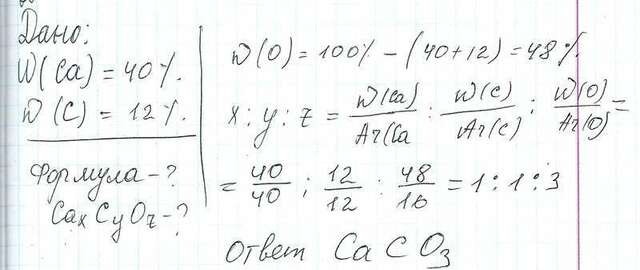 Дано:
W(Ca) = 40%.
W(C) = 12%.
Формула - ?
CaxCyOz - ?
W(O) = 100% - (40+12) = 48%.
x : y : z = W(Ca)/Ar(Ca : W(C)/Ar(C) : W(O)/Ar(O) =
= 40/40 : 12/12 : 48/16 = 1 : 1 : 3
Ответ CaCO3